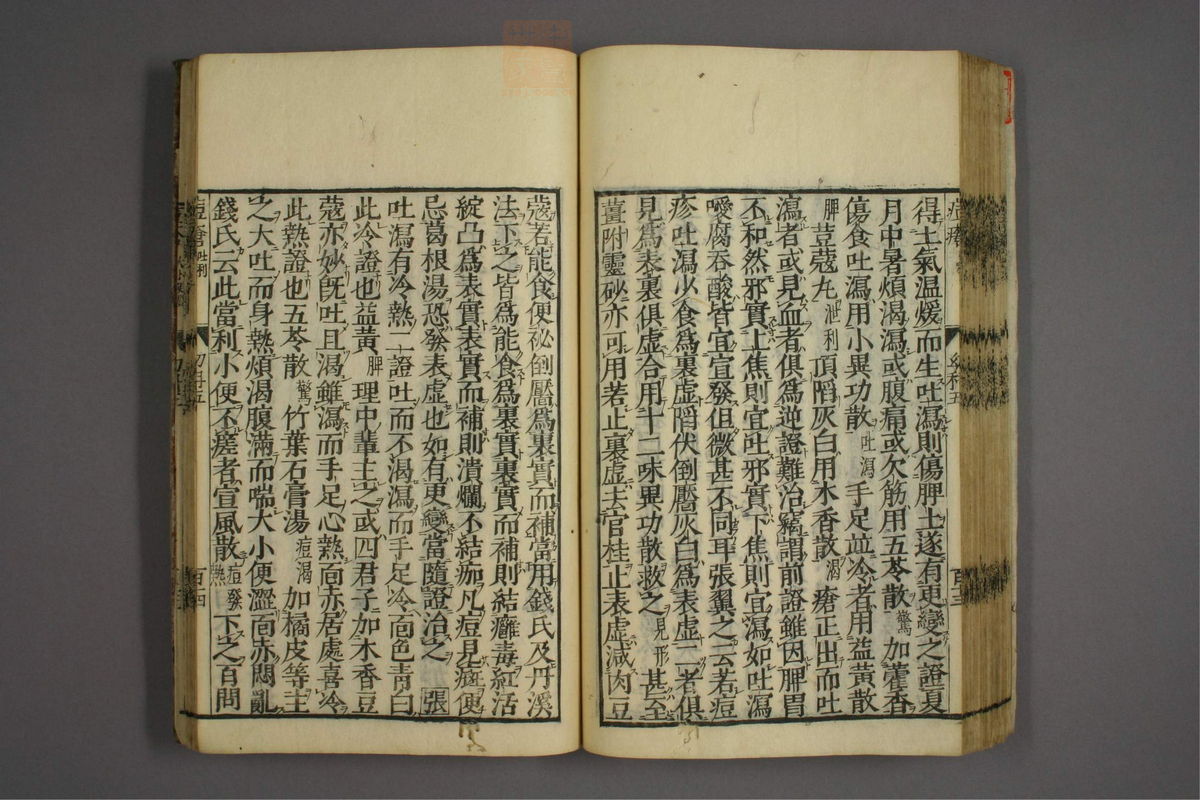 得土氣温煖而生吐瀉則傷脾土遂有更變之證夏
月中暑煩渴瀉或腹痛或欠筋用五苓散驚加藿香
傷食吐瀉用小異功散吐瀉手足並冷者用益黃散
脾荳蔻丸泄利頂䧟灰白用木香散渴瘡正出而吐
瀉者或見血者俱爲逆證難治竊謂前證雖因脾胃
不和然邪實上焦則宜吐邪實下焦則宜瀉如吐瀉
噯腐吞酸皆宜宣發但微甚不同耳張翼之云若痘
疹吐瀉少食爲裏虛䧟伏倒靨灰白爲表虛二者俱
見爲表裏俱虛合用十二味異功散救之見形甚至
薑附靈砂亦可用若止裏虛去官桂止表虛減肉豆
蔻若能食便祕倒靨爲裏實而補當用錢氏及丹溪
法下之皆爲能食爲裏實裏實而補則結癰毒紅活
綻凸爲表實表實而補則潰爛不結痂凡痘見斑便
忌葛根湯恐發表虛也如有更變當隨證治之 張
吐瀉有冷熱二證吐而不渴瀉而手足冷面色青白
此冷證也益黃脾理中輩主之或四君子加木香豆
蔻亦妙旣吐且渴雖瀉而手足心熱面赤居處喜冷
此熱證也五苓散驚竹葉石膏湯痘渴加橘皮等主
之大吐而身熱煩渴腹滿而喘大小便澀面赤悶亂
錢氏云此當利小便不瘥者宣風散痘發熱下之百問
痘瘡吐利
幼科五
百十四